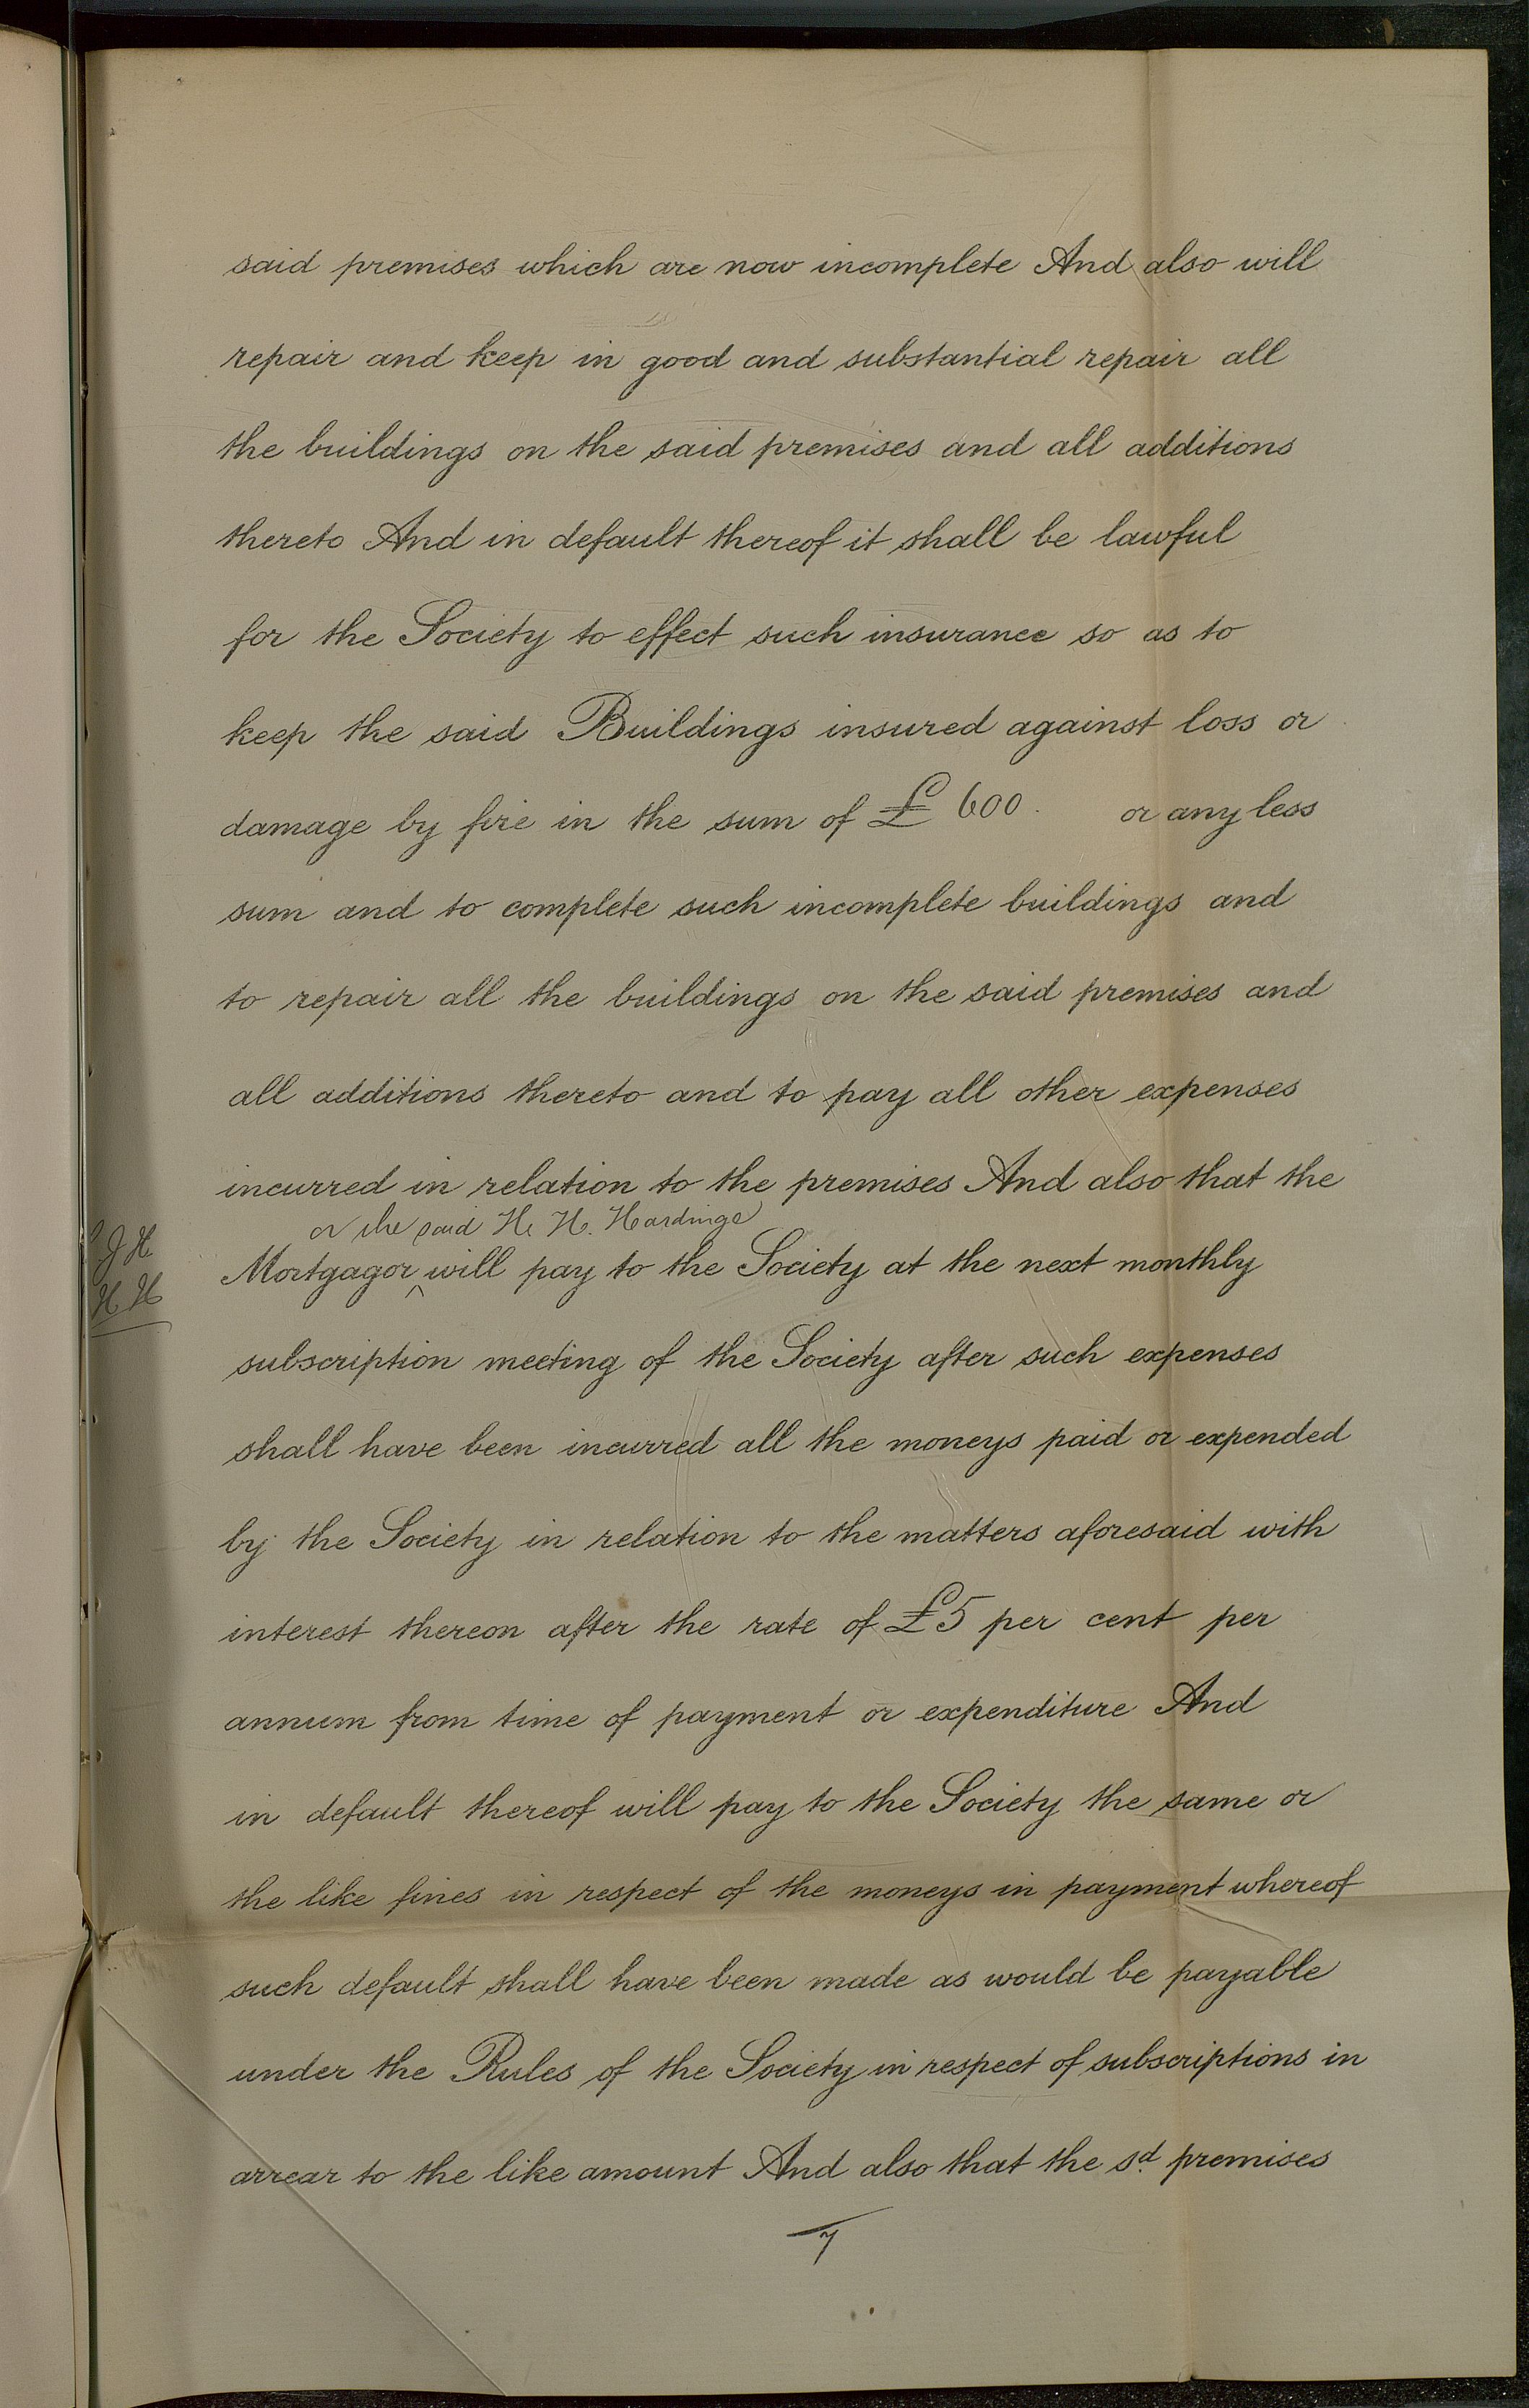 said premises which are now incomplete And also will
repair and keep in good and substantial repair all
the buildings on the said premises and all additions
thereto And in default thereof it shall be lawful
for the Society to effect such insurance so as to
keep the said Buildings insured against loss or
damage by fire in the sum of £ 600 or any less
sum and to complete such incomplete buildings and
to repair all the buildings on the said premises and
all additions thereto and to pay all other expenses
incurred in relation to the premises And also that the
or the said H. H. Hardinge
J H
Mortgagor ^ will pay to the Society at the next monthly
H H
subscription meeting of the Society after such expenses
shall have been incurred all the moneys paid or expended
by the Society in relation to the matters aforesaid with
interest thereon after the rate of £5 per cent per
annum from time of payment or expenditure And
in default thereof will pay to the Society the same or
the like fines in respect of the moneys in payment whereof
such default shall have been made as would be payable
under the Rules of the Society in respect of subscriptions in
arrear to the like amount And also that the sd. premises
7